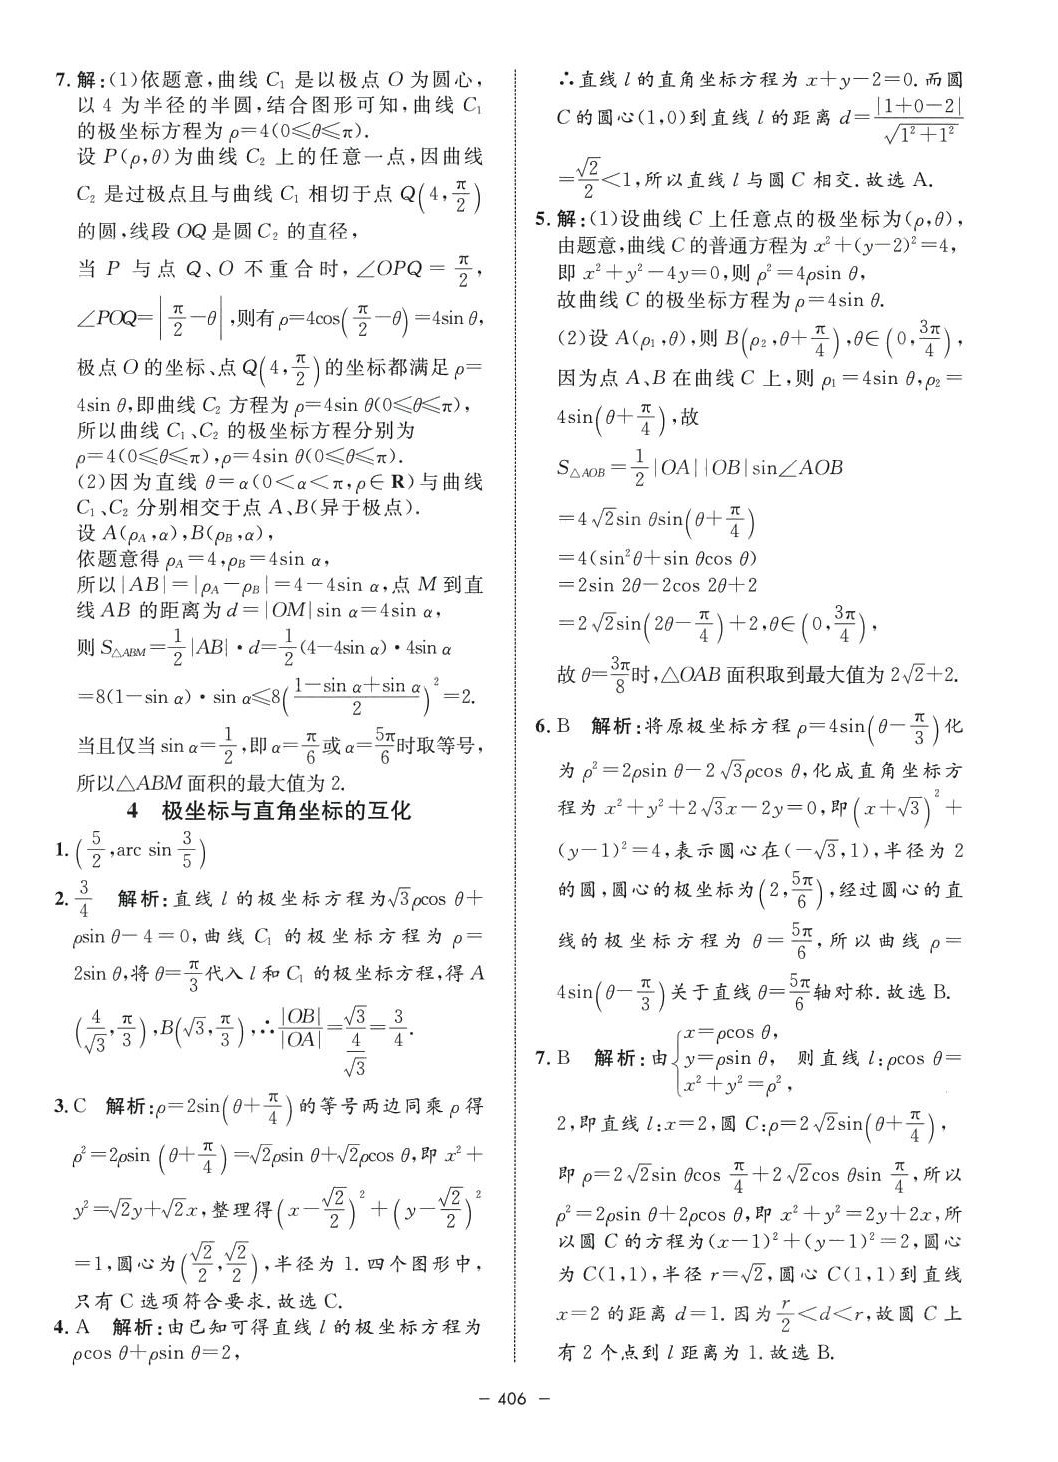 7. 解:(1)依题意,曲线 C₁ 是以极点 O 为圆心,
以 4 为半径的半圆,结合图形可知,曲线 C₁
的极坐标方程为 ρ=4(0≤θ≤π).
设 P(ρ,θ)为曲线 C₂ 上的任意一点,因曲线
C₂ 是过极点且与曲线 C₁ 相切于点 Q(4,π/2)
的圆,线段 OQ 是圆 C₂ 的直径,
当 P 与点 Q、O 不重合时,∠OPQ=π/2,
∠POQ=|π/2-θ|,则有 ρ=4cos(π/2-θ)=4sin θ,
极点 O 的坐标、点 Q(4,π/2)的坐标都满足 ρ=
4sin θ,即曲线 C₂ 方程为 ρ=4sin θ(0≤θ≤π),
所以曲线 C₁、C₂ 的极坐标方程分别为
ρ=4(0≤θ≤π),ρ=4sin θ(0≤θ≤π).
(2)因为直线 θ=α(0<α<π,ρ∈R)与曲线
C₁、C₂ 分别相交于点 A、B(异于极点).
设 A(ρ_A,α),B(ρ_B,α),
依题意得 ρ_A=4,ρ_B=4sin α,
所以|AB|=|ρ_A-ρ_B|=4-4sin α,点 M 到直
线 AB 的距离为 d=|OM|sin α=4sin α,
则 S△ABM=1/2|AB|·d=1/2(4-4sin α)·4sin α
=8(1-sin α)·sin α≤8((1-sin α+sin α)/2)²=2.
当且仅当 sin α=1/2,即 α=π/6或 α=5π/6时取等号,
所以△ABM 面积的最大值为 2.
4 极坐标与直角坐标的互化
1. (5/2,arc sin 3/5)
2. 3/4 解析:直线 l 的极坐标方程为√3ρcos θ+
ρsin θ-4=0,曲线 C₁ 的极坐标方程为 ρ=
2sin θ,将 θ=π/3代入 l 和 C₁ 的极坐标方程,得 A
(4/√3,π/3),B(√3,π/3),∴|OB|/|OA|=√3/(4/√3)=3/4.
3. C 解析:ρ=2sin(θ+π/4)的等号两边同乘 ρ 得
ρ²=2ρsin(θ+π/4)=√2ρsin θ+√2ρcos θ,即 x²+
y²=√2y+√2x,整理得(x-√2/2)²+(y-√2/2)²
=1,圆心为(√2/2,√2/2),半径为 1.四个图形中,
只有 C 选项符合要求.故选 C.
4. A 解析:由已知可得直线 l 的极坐标方程为
ρcos θ+ρsin θ=2,
∴直线 l 的直角坐标方程为 x+y-2=0.而圆
C 的圆心(1,0)到直线 l 的距离 d=|1+0-2|/√(1²+1²)
=√2/2<1,所以直线 l 与圆 C 相交.故选 A.
5. 解:(1)设曲线 C 上任意点的极坐标为(ρ,θ),
由题意,曲线 C 的普通方程为 x²+(y-2)²=4,
即 x²+y²-4y=0,则 ρ²=4ρsin θ,
故曲线 C 的极坐标方程为 ρ=4sin θ.
(2)设 A(ρ₁,θ),则 B(ρ₂,θ+π/4),θ∈(0,3π/4),
因为点 A、B 在曲线 C 上,则 ρ₁=4sin θ,ρ₂=
4sin(θ+π/4),故
S△AOB=1/2|OA||OB|sin∠AOB
=4√2sin θsin(θ+π/4)
=4(sin²θ+sin θcos θ)
=2sin 2θ-2cos 2θ+2
=2√2sin(2θ-π/4)+2,θ∈(0,3π/4),
故 θ=3π/8时,△OAB 面积取到最大值为 2√2+2.
6. B 解析:将原极坐标方程 ρ=4sin(θ-π/3)化
为 ρ²=2ρsin θ-2√3ρcos θ,化成直角坐标方
程为 x²+y²+2√3x-2y=0,即(x+√3)²+
(y-1)²=4,表示圆心在(-√3,1),半径为 2
的圆,圆心的极坐标为(2,5π/6),经过圆心的直
线的极坐标方程为 θ=5π/6,所以曲线 ρ=
4sin(θ-π/3)关于直线 θ=5π/6轴对称.故选 B.
7. B 解析:由{x=ρcos θ, y=ρsin θ, x²+y²=ρ², 则直线 l:ρcos θ=
2,即直线 l:x=2,圆 C:ρ=2√2sin(θ+π/4),
即 ρ=2√2sin θcos π/4+2√2cos θsin π/4,所以
ρ²=2ρsin θ+2ρcos θ,即 x²+y²=2y+2x,所
以圆 C 的方程为(x-1)²+(y-1)²=2,圆心
为 C(1,1),半径 r=√2,圆心 C(1,1)到直线
x=2 的距离 d=1.因为 r/2<d<r,故圆 C 上
有 2 个点到 l 距离为 1.故选 B.
- 406 -